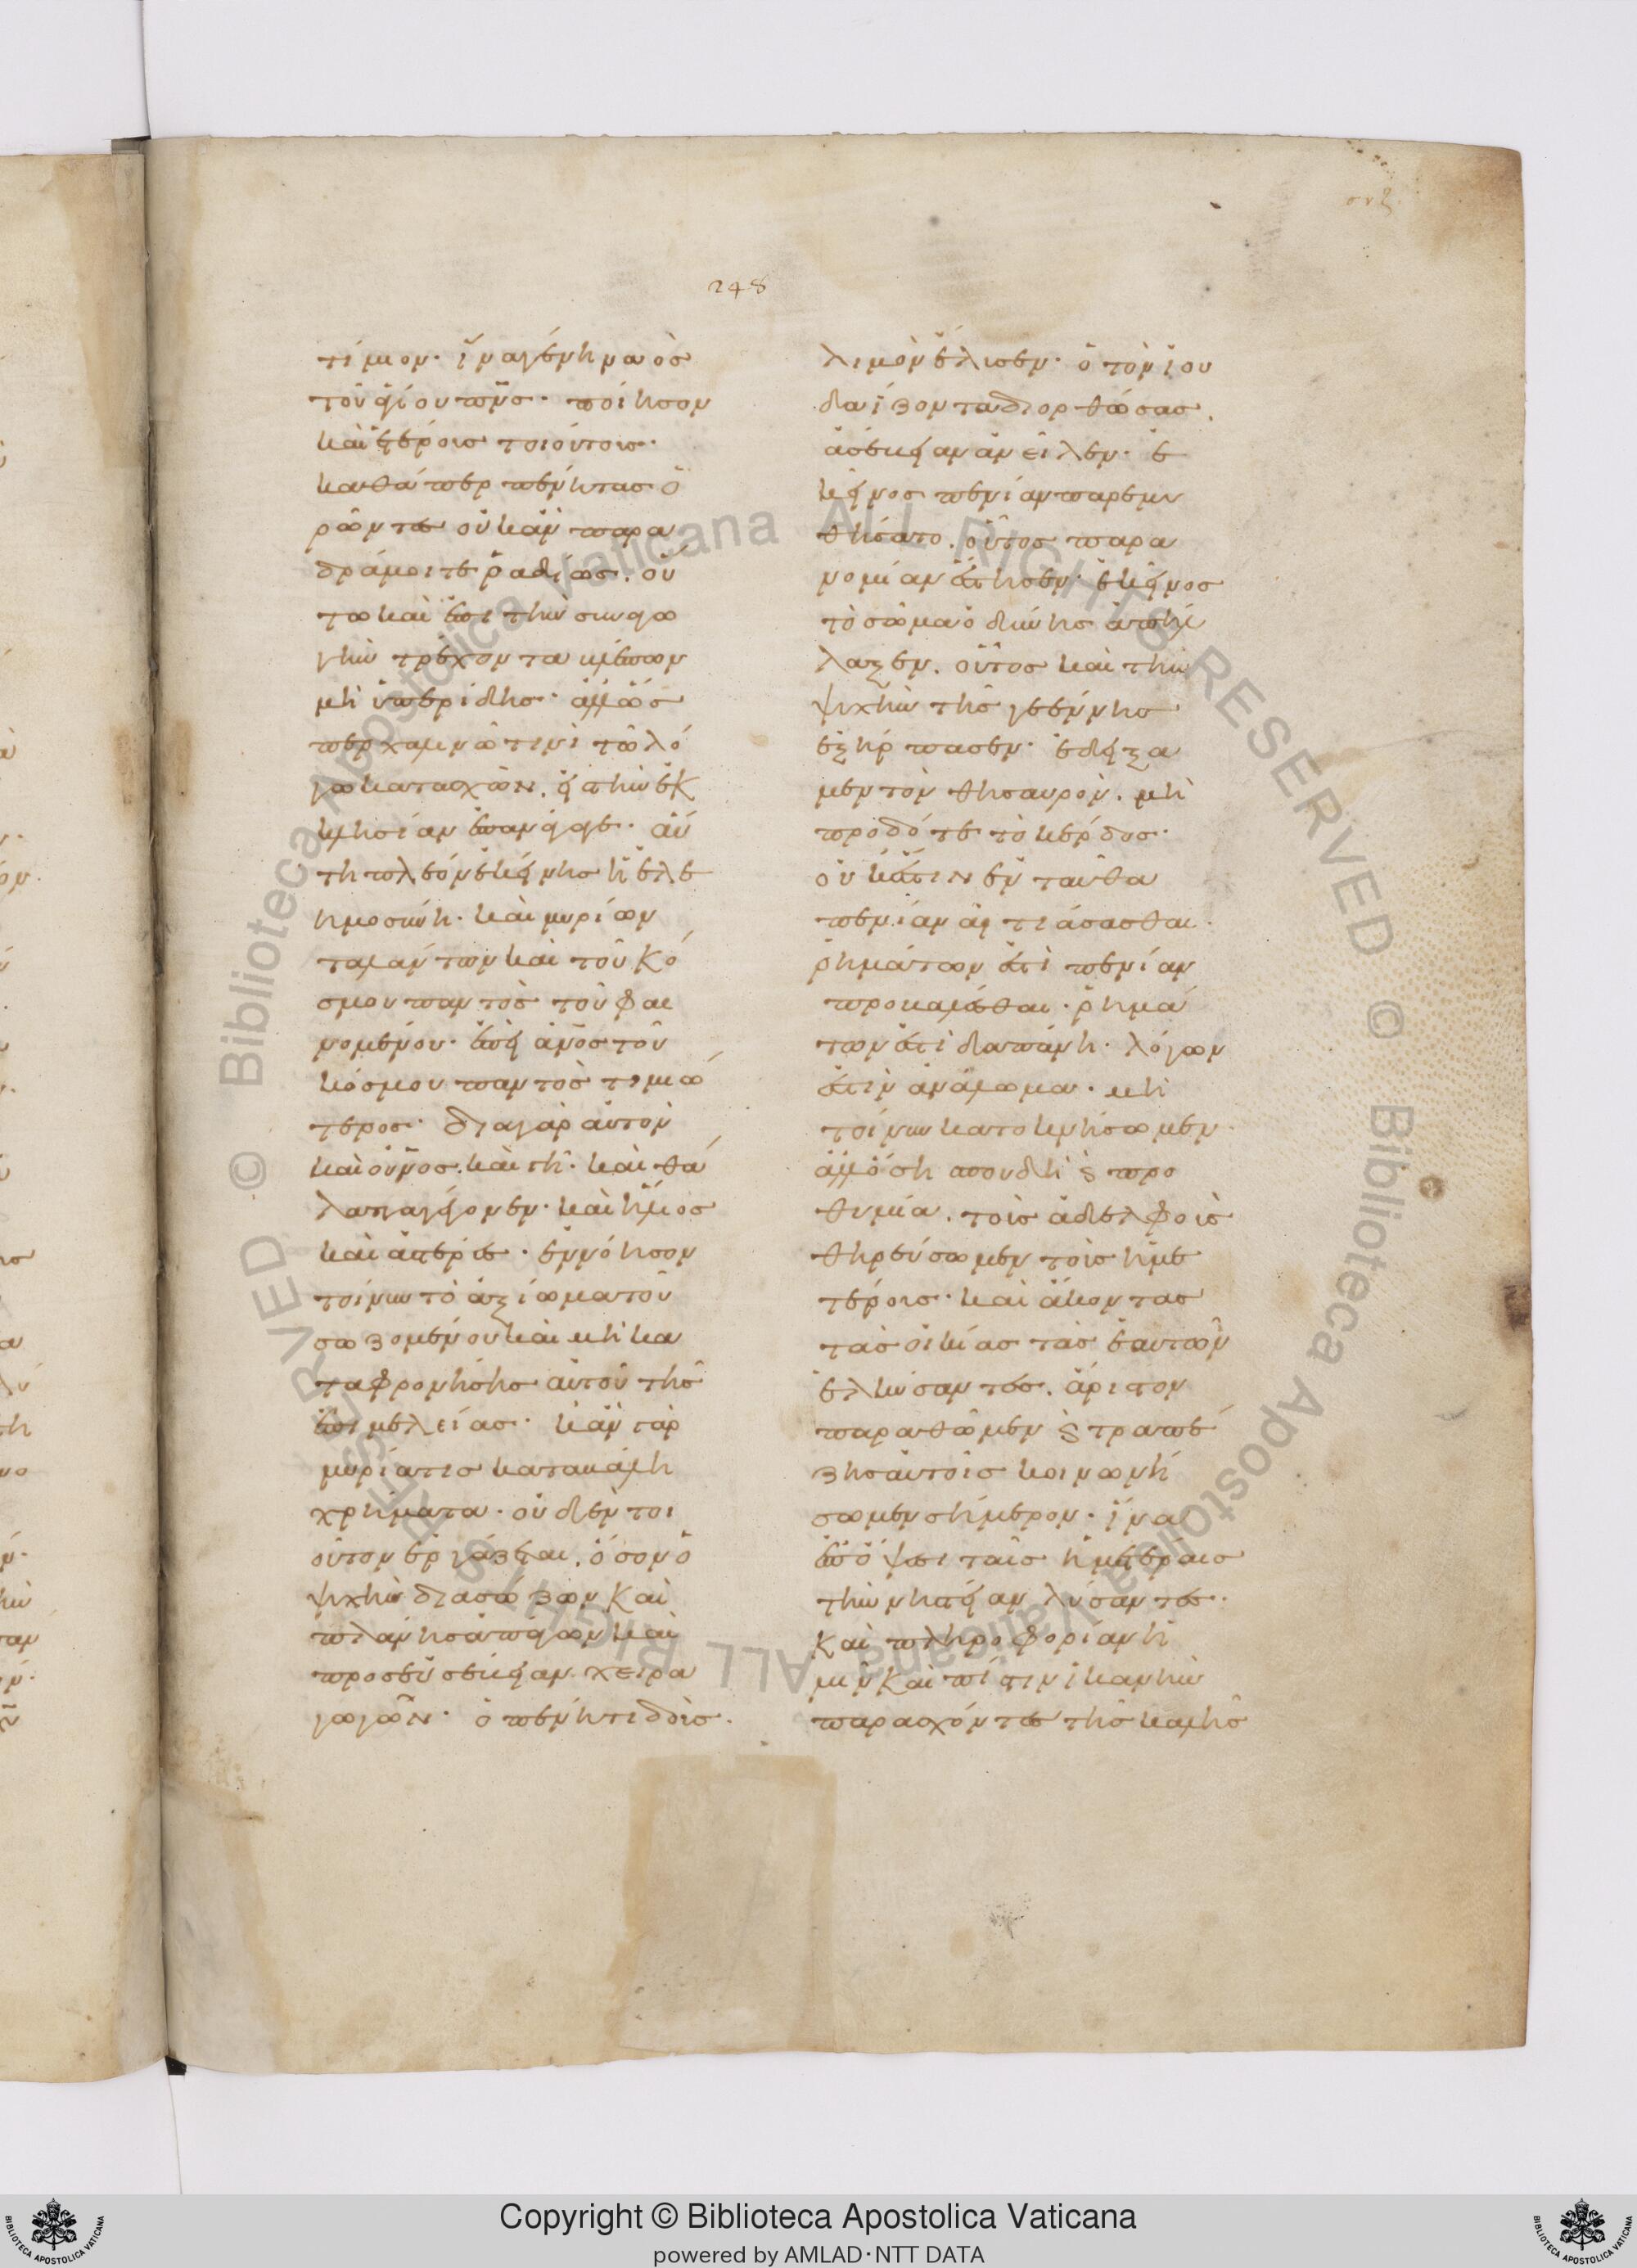 σνζ
248
τίμιον· ἵνα γένη ναὸς
τοῦ ἁγίου πν̅ς· ποίησον
καὶ ἑτέροις τοιούτοις·
καθάπερ πένητας ὁ
ρῶντες οὐκ ἂν παρα
δράμοιτε ῥαδίως. οὕ
τω καὶ ἐπὶ τὴν συναγω
γὴν τρέχοντα βλέπων
μὴ ὑπερίδης· ἀλλ' ὥς
περ χαλινῶ τινὶ τῶ λό
γω κατασχὼν, εἰς τὴν ἐκ
κλησίαν ἐπανάγαγε· αὕ
τη πλέον ἐκείνης ἡ ἐλε
ημοσύνη· καὶ μυρίων
ταλάντων καὶ τοῦ κό
σμου παντὸς τοῦ φαι
νομένου· ἐπεὶ ἄνο̅ς τοῦ
κόσμου παντὸς τιμιώ
τερος· διὰ γὰρ αὐτὸν
καὶ οὐν̅ος. καὶ γῆ· καὶ θά
λαττα γέγονεν· καὶ ἥλιος
καὶ ἀστέρες· ἐννόησον
τοίνυν τὸ ἀξίωμα τοῦ
σωζομένου καὶ μὴ κα
ταφρονήσης αὐτοῦ τῆς
ἐπιμελείας· κἂν γὰρ
μυριάτις καταβάλη
χρήματα· οὐδέν τοι
οῦτον ἐργάζεται, ὅσον ὁ
ψυχὴν διασώζων καὶ
πλάνης ἀπάγων καὶ
πρὸς εὐσέβειαν χειρα
γωγῶν· ὁ πένητι διδοὺς.
λιμὸν ἔλυσεν· ὁ τὸν ἰου
δαΐζοντα διορθώσας.
ἀσέβειαν ἀνεῖλεν· ἐ
κεῖνος πενίαν παρεμυ
θήσατο. οὗτος παρα
νομίαν ἔστησεν· ἐκεῖνος
τὸ σῶμα ὀδύνης ἀπήλ
λαξεν. οὗτος καὶ τὴν
ψυχὴν τῆς γεέννης
ἐξήρπασεν· ἔδειξα
μεν τὸν θησαυρόν. μὴ
προδότε τὸ κέρδος·
οὐκ ἔστιν ἐνταῦθα
πενίαν αἰτιάσασθαι·
ῥημάτων ἐστὶ πενίαν
προβαλέσθαι· ῥημά
των ἐστὶ δαπάνη· λόγων
ἐστὶν ἀνάλωμα. μὴ
τοίνυν κατοκνήσωμεν
ἀλλ' ὅση σπουδὴ ϗ προ
θυμία. τοὺς ἀδελφοὺς
θηρεύσωμεν τοὺς ἡμε
τέρους· καὶ ἄκοντας
τὰς οἰκίας τὰς ἑαυτῶν
ἑλκύσαντες. ἄριστον
παραθῶμεν ϗ τραπέ
ζης αὐτοῖς κοινωνή
σωμεν σήμερον· ἵνα
ἐπ' ὄψεσι ταῖς ἡμετέραις
τὴν νηστείαν λύσαντες·
καὶ πληροφορίαν ἡ
μῖν καὶ πίστιν ἱκανὴν
παρασχόντες τῆς καλῆς
Copyright © Biblioteca Apostolica Vaticana
powered by AMLAD·NTT DATA